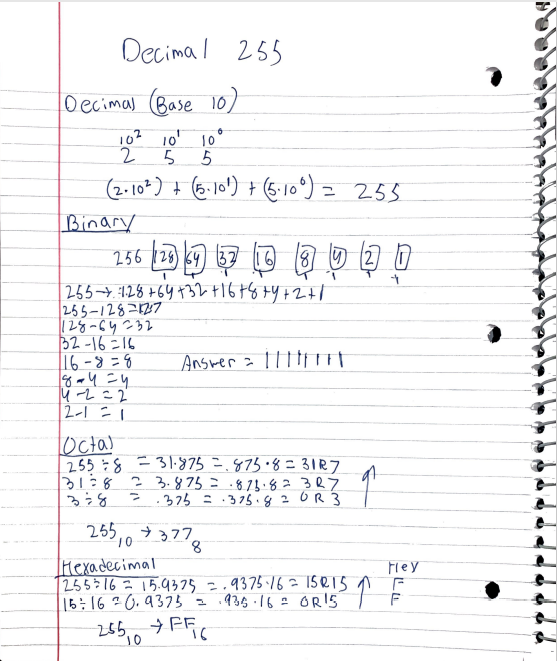 Decimal 255
Decimal (Base 10)
10² 10¹ 10⁰
2 5 5
(2·10²) + (5·10¹) + (5·10⁰) = 255
Binary
256 128 64 32 16 8 4 2 1
255 → 128+64+32+16+8+4+2+1
255-128=127
128-64=32
32-16=16
16-8=8 Answer = 11111111
8-4=4
4-2=2
2-1=1
Octal
255÷8 = 31.875 = .875·8 = 31R7
31÷8 = 3.875 = .875·8 = 3R7
3÷8 = .375 = .375·8 = 0R3
255₁₀ → 377₈
Hexadecimal Hex
255÷16 = 15.9375 = .9375·16 = 15R15 F
15÷16 = 0.9375 = .935·16 = 0R15 F
255₁₀ → FF₁₆